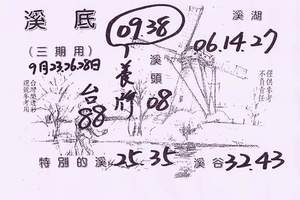 溪底
(三期用)
9月23.26.28日
09.38
養牌
溪頭
08
台
88
溪湖
06.14.27
僅供參考
不負責任
特別的溪 25.35
溪谷 32.43